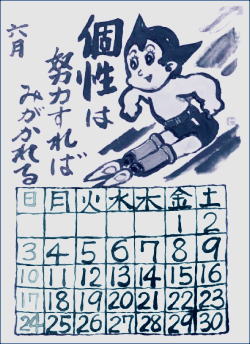 六月
個性は
努力すれば
みがかれる
日 月 火 水 木 金 土
1 2
3 4 5 6 7 8 9
10 11 12 13 14 15 16
17 18 19 20 21 22 23
24 25 26 27 28 29 30